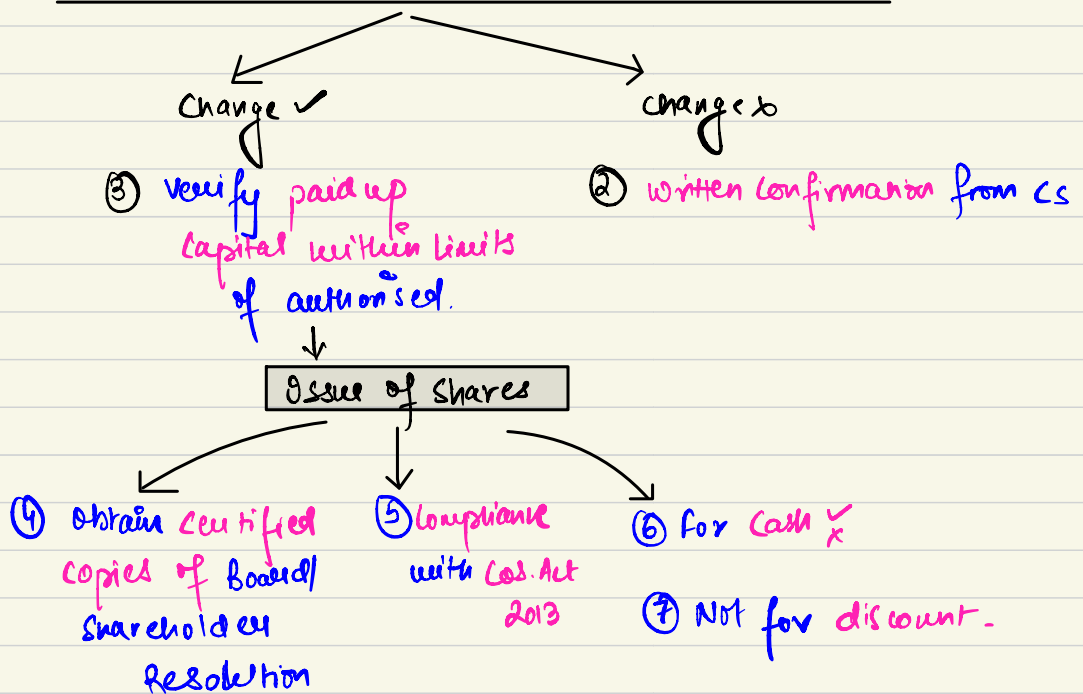 Change ✓
change x
③ verify paid up
capital within limits
of authorised.
② written confirmation from CS
Issue of Shares
④ obtain certified
copies of Board/
shareholder
Resolution
⑤ Compliance
with Cos. Act
2013
⑥ for cash ✓
x
⑦ Not for discount.